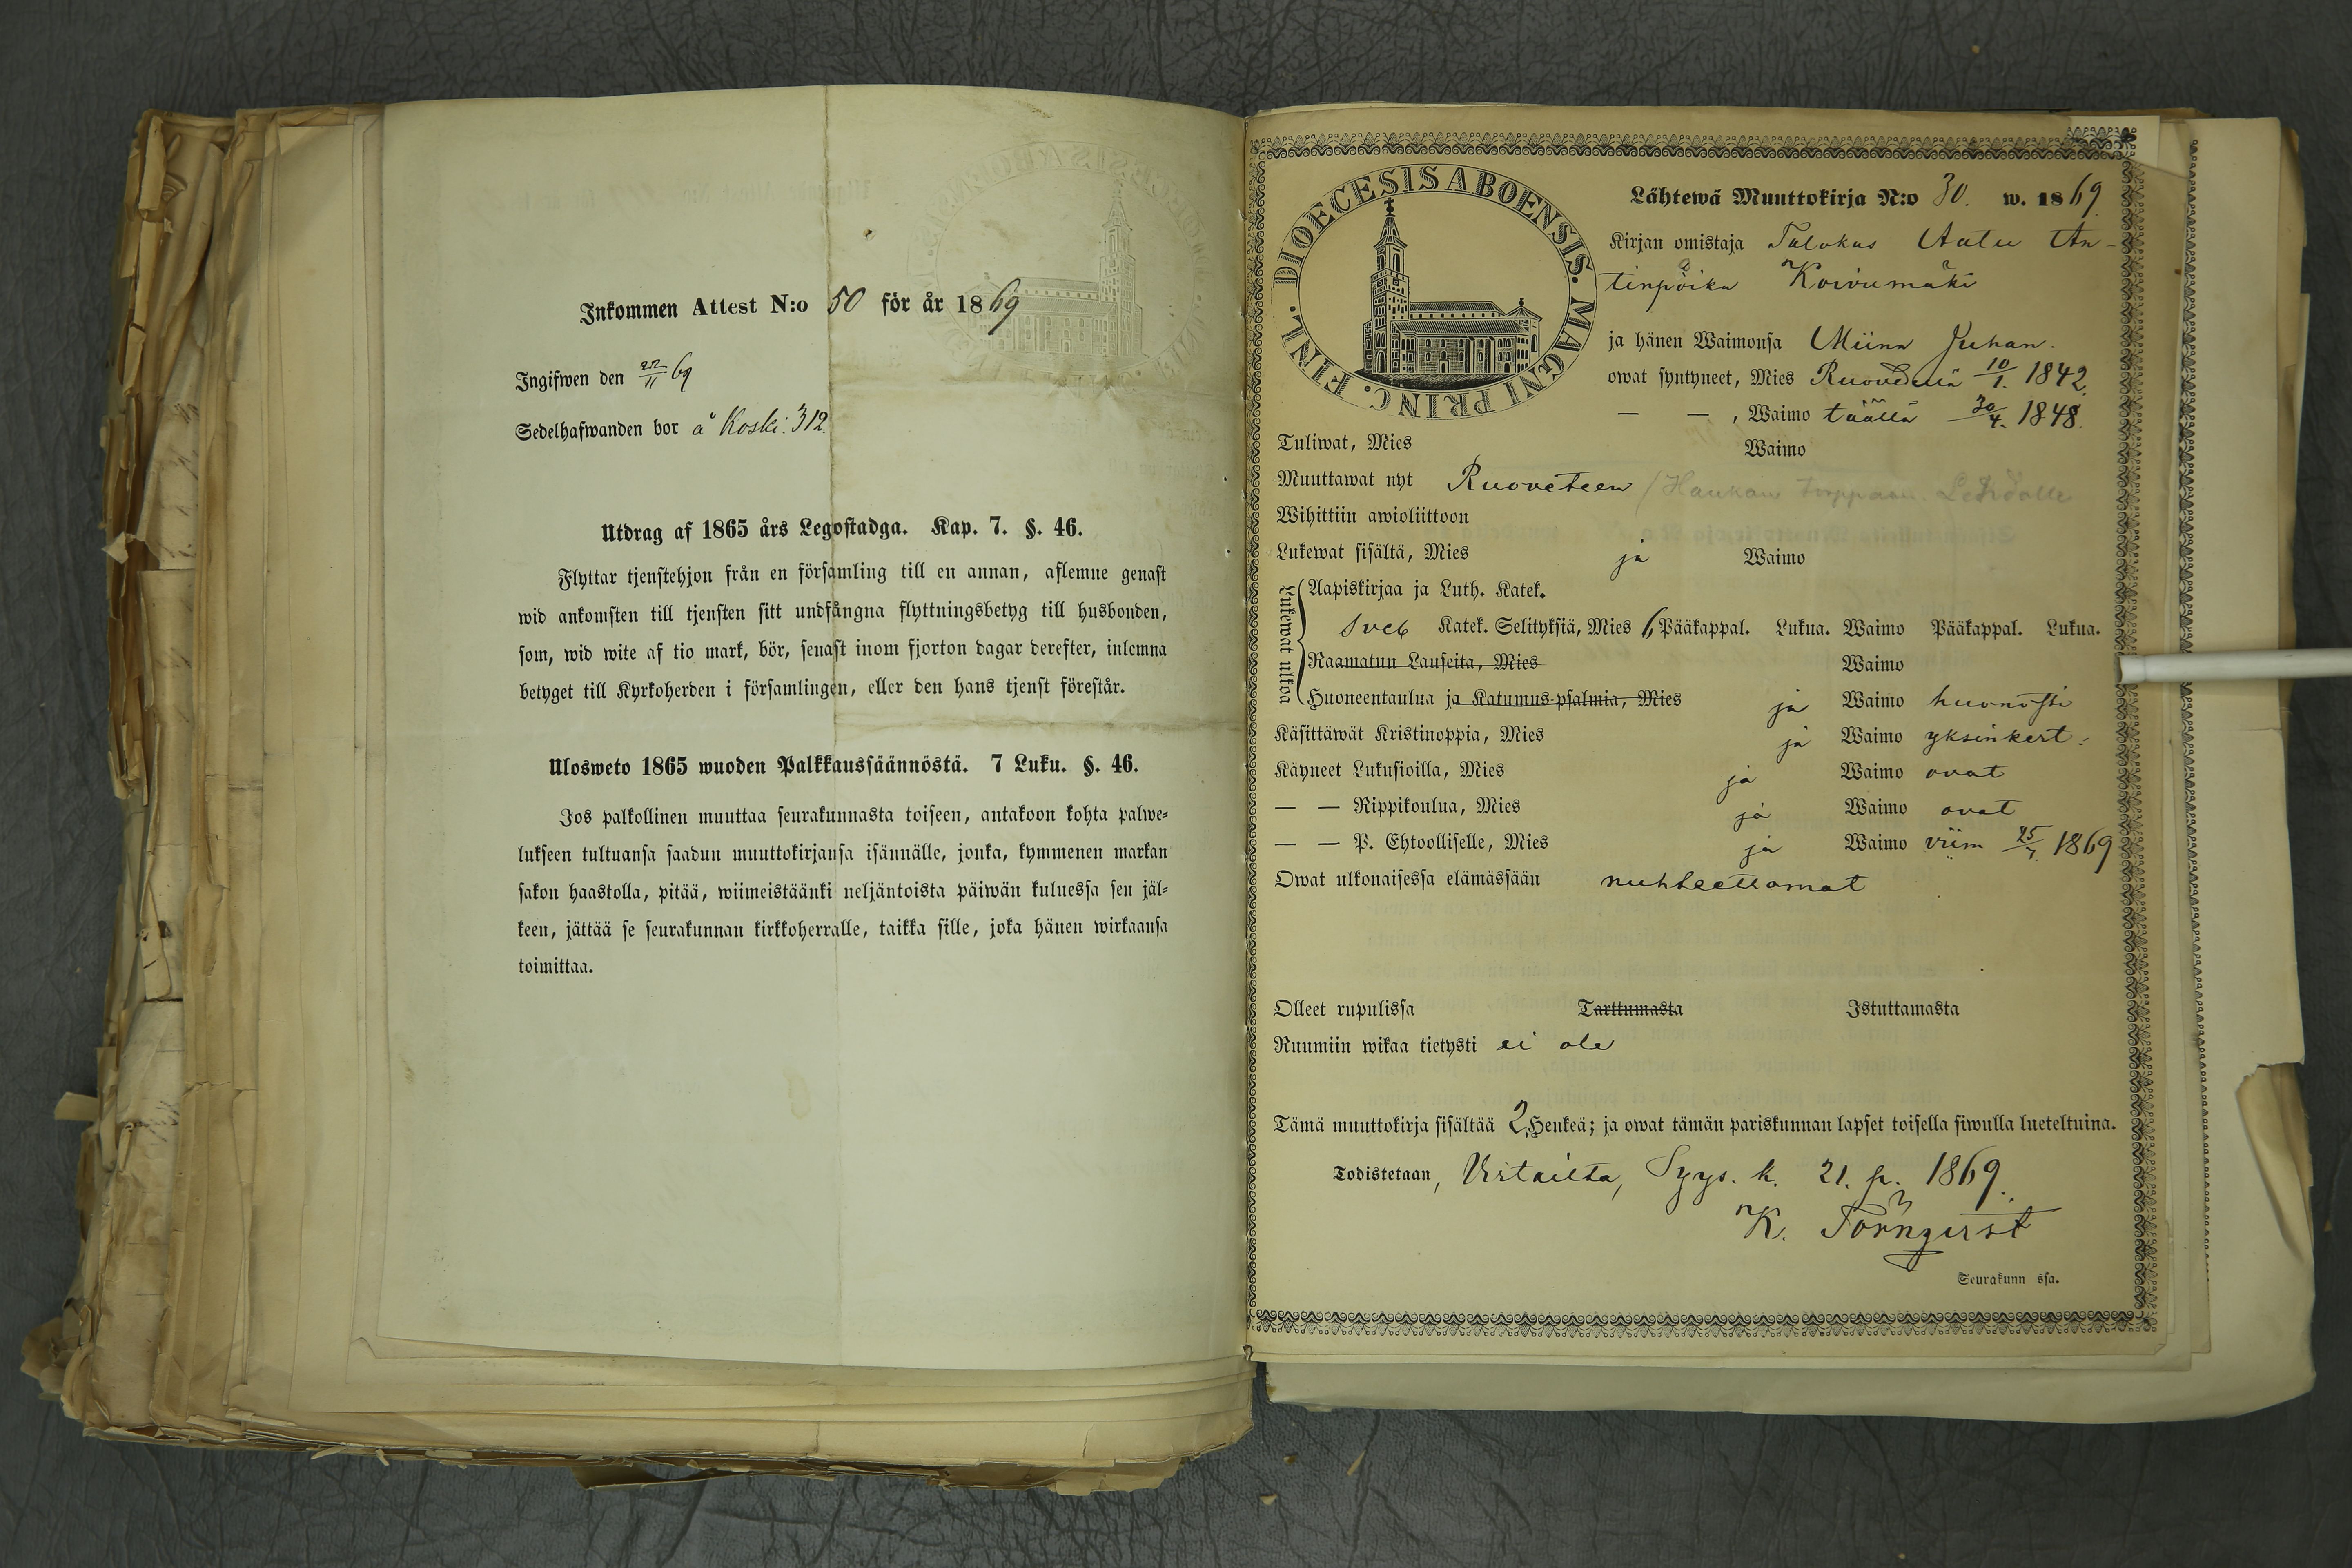 Inkommen Attest N:o 50 för år 1869
Ingifwen den 22/11 69
Sedelhafwanden bor å Koski. 312.
Utdrag af 1865 års Legostadga. Kap. 7. §. 46.
Flyttar tjenstehjon från en församling till en annan, aflemne genast
wid ankomsten till tjensten sitt undfångna flyttningsbetyg till husbonden,
som, wid wite af tio mark, bör, senast inom fjorton dagar derefter, inlemna
betyget till Kyrkoherden i församlingen, eller den hans tjenst förestår.
Ulosweto 1865 wuoden Palkkaussäännöstä. 7 Luku. §. 46.
Jos palkollinen muuttaa seurakunnasta toiseen, antakoon kohta palwe-
lukseen tultuansa saadun muuttokirjansa isännälle, jonka, kymmenen markan
sakon haastolla, pitää, wiimeistäänki neljäntoista päiwän kuluessa sen jäl-
keen, jättää se seurakunnan kirkkoherralle, taikka sille, joka hänen wirkaansa
toimittaa.
DIOECESIS ABOENSIS. MAGNI PRINC. FINL.
Lähtewä Muuttokirja N:o 30. w. 1869.
Kirjan omistaja Talokas Aatu An-
tinpoika Koivumäki
ja hänen Waimonsa Miina Juhan.
owat syntyneet, Mies Ruovedellä 10/1. 1842.
— — , Waimo täällä 30/4. 1848.
Tuliwat, Mies Waimo
Muuttawat nyt Ruoveteen / Haukan torppaan
Wihittiin awioliittoon
Lukewat sisältä, Mies ja Waimo
Lukewat ulkoa
Aapiskirjaa ja Luth. Katek.
Sveb Katek. Selityksiä, Mies 6 Pääkappal. Lukua. Waimo Pääkappal. Lukua.
Raamatun Lauseita, Mies Waimo
Huoneentaulua ja Katumus-psalmia, Mies ja Waimo huonosti
Käsittäwät Kristinoppia, Mies ja Waimo yksinkert.
Käyneet Lukusioilla, Mies ja Waimo ovat
— — Rippikoulua, Mies ja Waimo ovat
— — P. Ehtoolliselle, Mies ja Waimo viim 25/7. 1869
Owat ulkonaisessa elämässään nuhteettomat
Olleet rupulissa Tarttumasta Istuttamasta
Ruumiin wikaa tietysti ei ole
Tämä muuttokirja sisältää 2 Henkeä; ja owat tämän pariskunnan lapset toisella siwulla lueteltuina.
Todistetaan, Virtailta, Syys. k. 21. p. 1869.
K. Törnqvist
Seurakunn ssa.